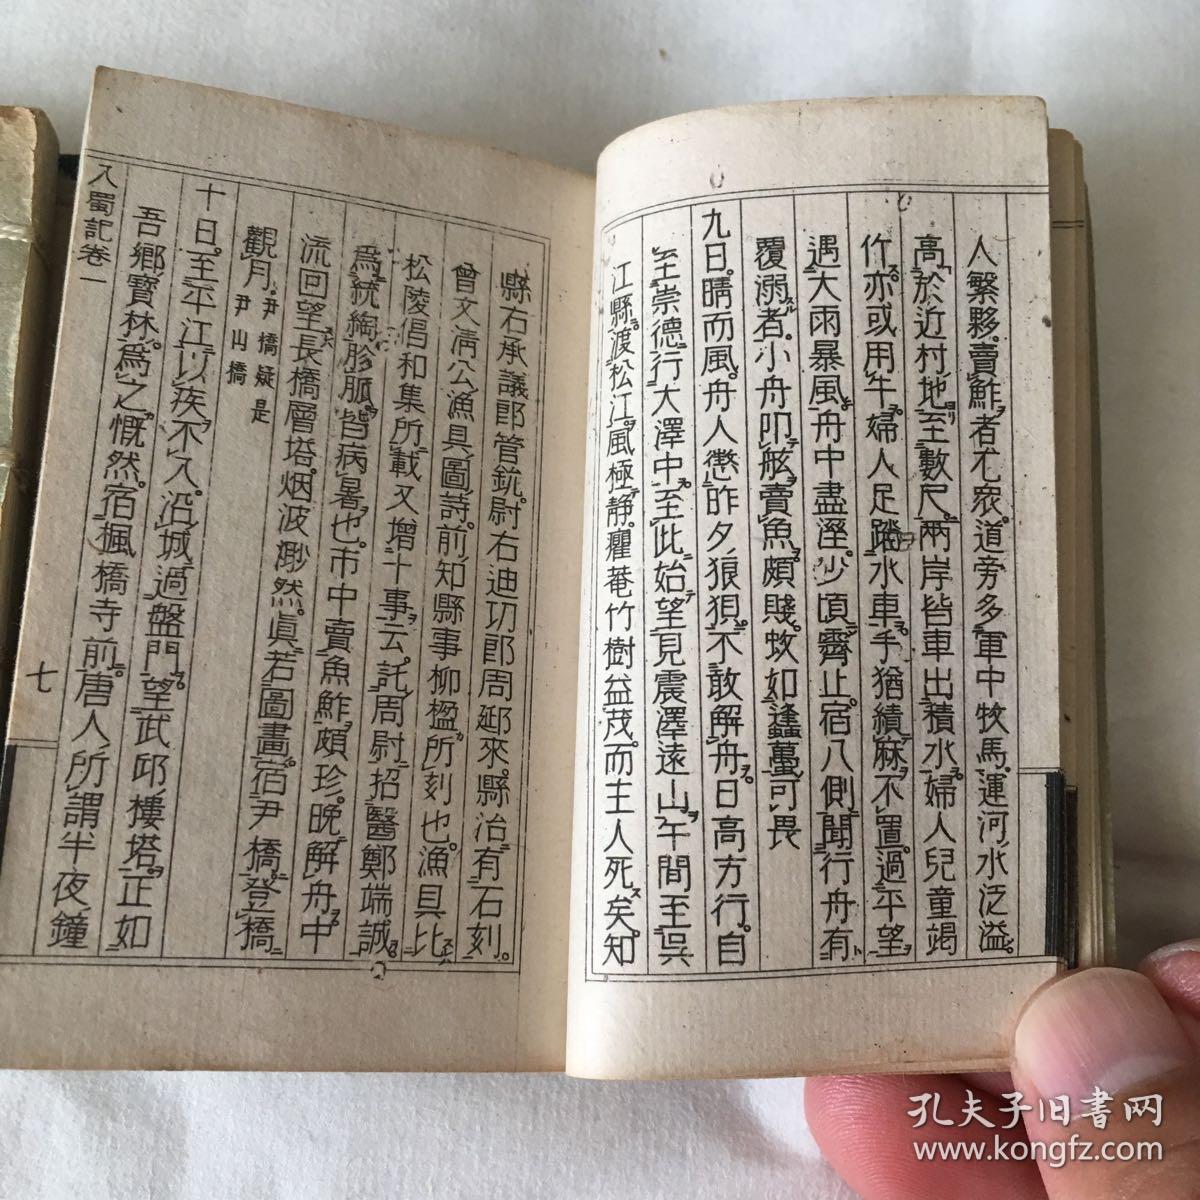 人繁夥賣鮓者尤衆道旁多軍中牧馬運河水泛溢
高於近村地至數尺兩岸皆車出積水婦人兒童竭
作亦或用牛婦人足踏水車手猶績麻不置過平望
遇大雨暴風舟中盡溼少頃霽止宿八測聞行舟有
覆溺者小舟叩舷賣魚頗賤蚊如蠭蠆可畏
九日晴而風舟人懲昨夕狼狽不敢解舟日高方行自
至崇德行大澤中至此始望見震澤遠山午間至吳
江縣渡松江風極靜癯菴竹樹益茂而主人死矣知
縣石承議郎管銃尉右迪功郎周郔來縣治有石刻
曾文清公漁具圖詩前知縣事柳楹所刻也漁具比
松陵倡和集所載又增十事云託周尉招醫鄭端誠
爲統綯胗脈皆病暑也市中賣魚鮓頗珍晚解舟中
流回望長橋層塔烟波渺然眞若圖畫宿尹橋登橋
觀月尹橋疑是尹山橋
十日至平江以疾不入沿城過盤門望武邱樓塔正如
吾鄉寶林爲之慨然宿楓橋寺前唐人所謂半夜鐘
入蜀記卷一
七
孔夫子旧书网
www.kongfz.com